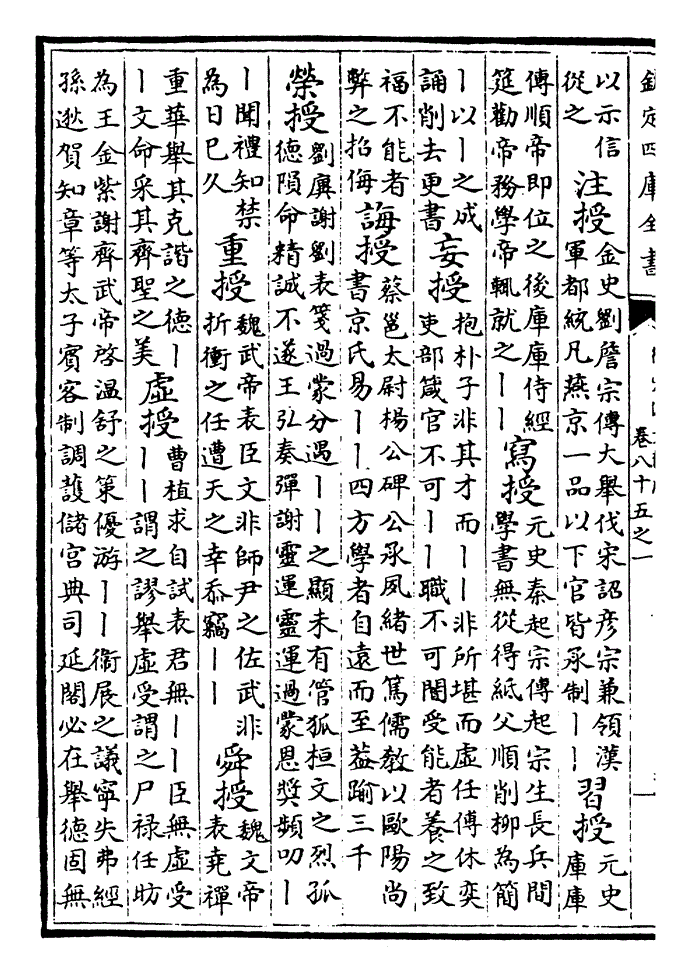 欽定四庫全書
卷八十五之一
以示信從之 注授 金史劉詹宗傳大舉伐宋詔彥宗兼領漢軍都統凡燕京一品以下官皆承制丨丨 習授 元史庫庫
傳順帝即位之後庫庫侍經筵勸帝務學帝輒就之丨丨 寫授 元史秦起宗傳起宗生長兵間學書無從得紙父順削柳為簡
丨以丨之成誦削去更書 妄授 抱朴子非其才而丨丨非所堪而虛任傅休奕吏部箴官不可丨丨職不可闇受能者養之致
福不能者弊之招侮 誨授 蔡邕太尉楊公碑公承夙緒世篤儒教以歐陽尚書京氏易丨丨四方學者自遠而至葢踰三千
榮授 劉廙謝劉表箋過蒙分遇丨丨之顯未有管狐桓文之烈孤德隕命精誠不遂王弘奏彈謝靈運靈運過蒙恩奬頻叨丨
丨聞禮知禁為日已久 重授 魏武帝表臣文非師尹之佐武非折衝之任遭天之幸忝竊丨丨 舜授 魏文帝表堯禪
重華舉其克諧之德丨丨文命采其齊聖之美 虛授 曹植求自試表君無丨丨臣無虛受丨丨謂之謬舉虛受謂之尸祿任昉
為王金紫謝齊武帝啓溫舒之策優游丨丨衞展之議寧失弗經孫逖賀知章等太子賓客制調護儲宮典司延閣必在舉德固無